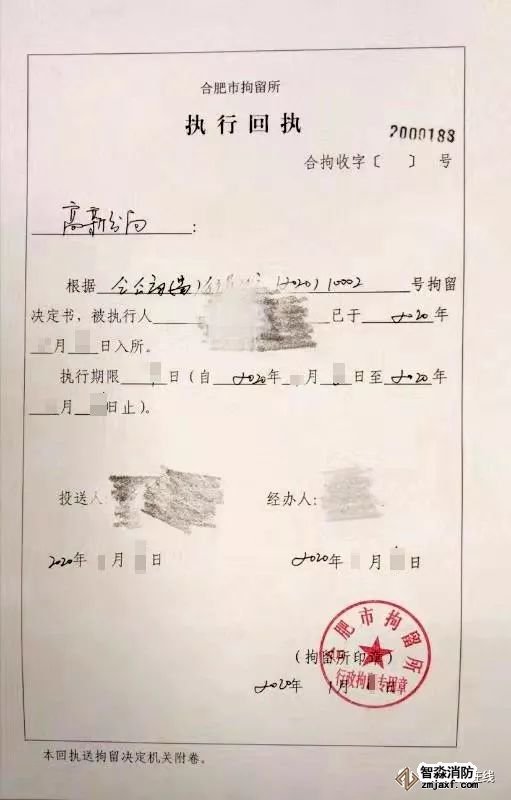 合肥市拘留所
执行回执
2000183
合拘收字〔 〕 号
高新分局:
根据 2020)10002 号拘留
决定书,被执行人 已于 2020年
月 日入所。
执行期限 日(自 2020年 月 日至 2020年
月 日止)。
投送人 经办人:
2020年 月 日 2020年 月 日
合肥市拘留所
行政拘 专用章
(拘留所印
2020年 1月 日
本回执送拘留决定机关附卷。
智淼消防
在线
zmjaxf.com